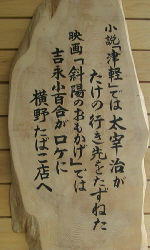 小説「津軽」では太宰治が
たけの行き先をたずねた
映画「斜陽のおもかげ」では
吉永小百合がロケに
横野たばこ店へ